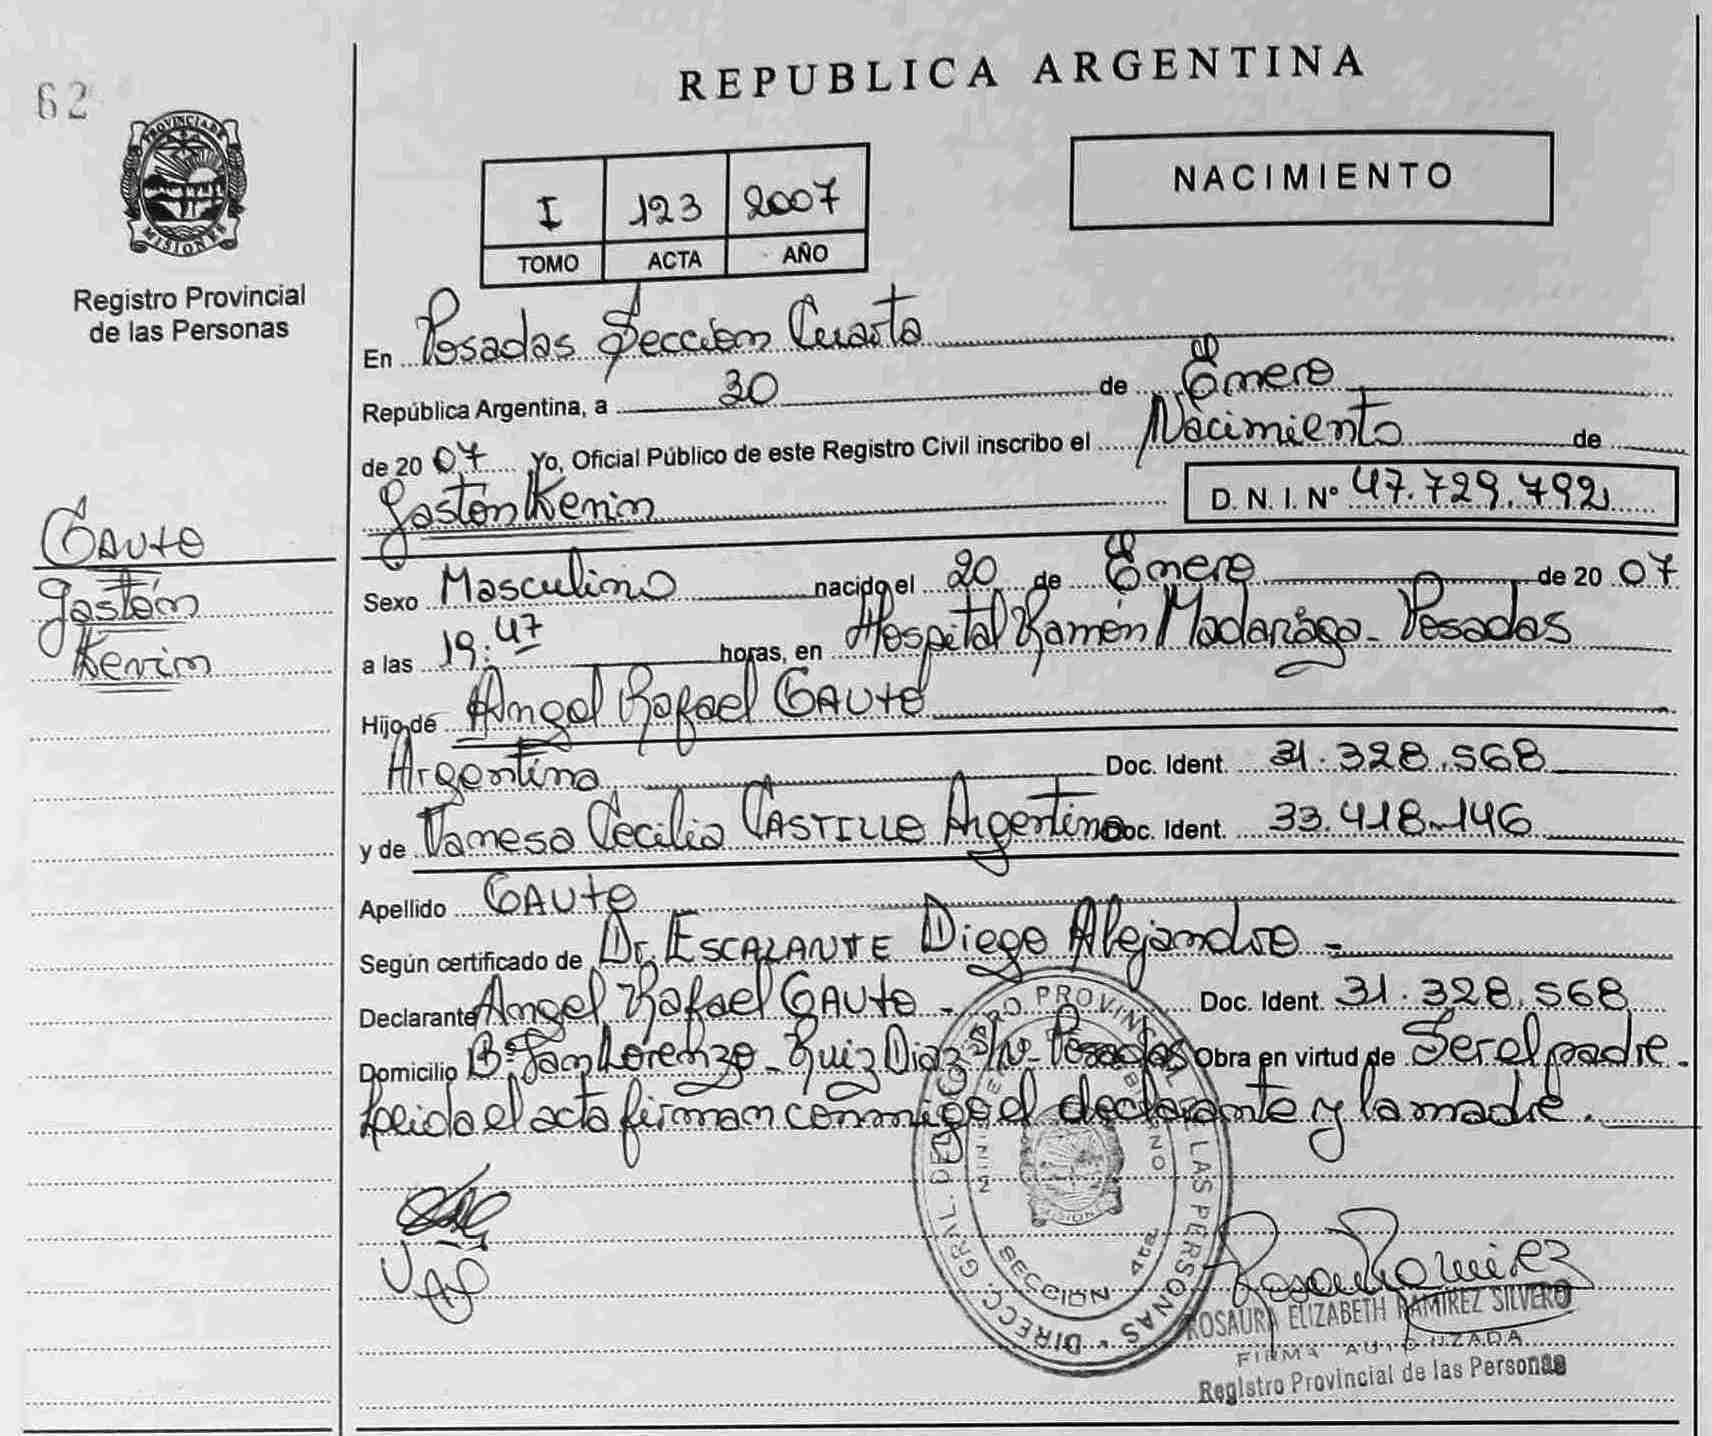 62
PROVINCIA DE
MISIONES
Registro Provincial
de las Personas
Gauto
Gastón
Kevin
REPUBLICA ARGENTINA
NACIMIENTO
I 123 2007
TOMO ACTA AÑO
En Posadas Sección Cuarta
República Argentina, a 30 de Enero
de 2007 Yo, Oficial Público de este Registro Civil inscribo el Nacimiento de
Gastón Kevin D. N. I. Nº 47.729.792
Sexo Masculino nacido el 20 de Enero de 2007
a las 19:47 horas, en Hospital Ramón Madariaga - Posadas
Hijo de Angel Rafael GAUTO
Argentina Doc. Ident. 31.328.568
y de Vanesa Cecilia CASTILLO Argentina Doc. Ident. 33.418.146
Apellido GAUTO
Según certificado de Dr. ESCALANTE Diego Alejandro -
Declarante Angel Rafael GAUTO - Doc. Ident. 31.328.568
Domicilio Bº San Lorenzo - Ruiz Diaz S/Nº - Posadas Obra en virtud de Ser el padre -
Leida el acta firman conmigo el declarante y la madre.
DIRECC. GRAL. DEL REGISTRO PROVINCIAL DE LAS PERSONAS
MINISTERIO DE GOBIERNO
MISIONES
SECCION 4ta
Rosaura Ramirez
ROSAURA ELIZABETH RAMIREZ SILVERO
FIRMA AUTORIZADA
Registro Provincial de las Personas